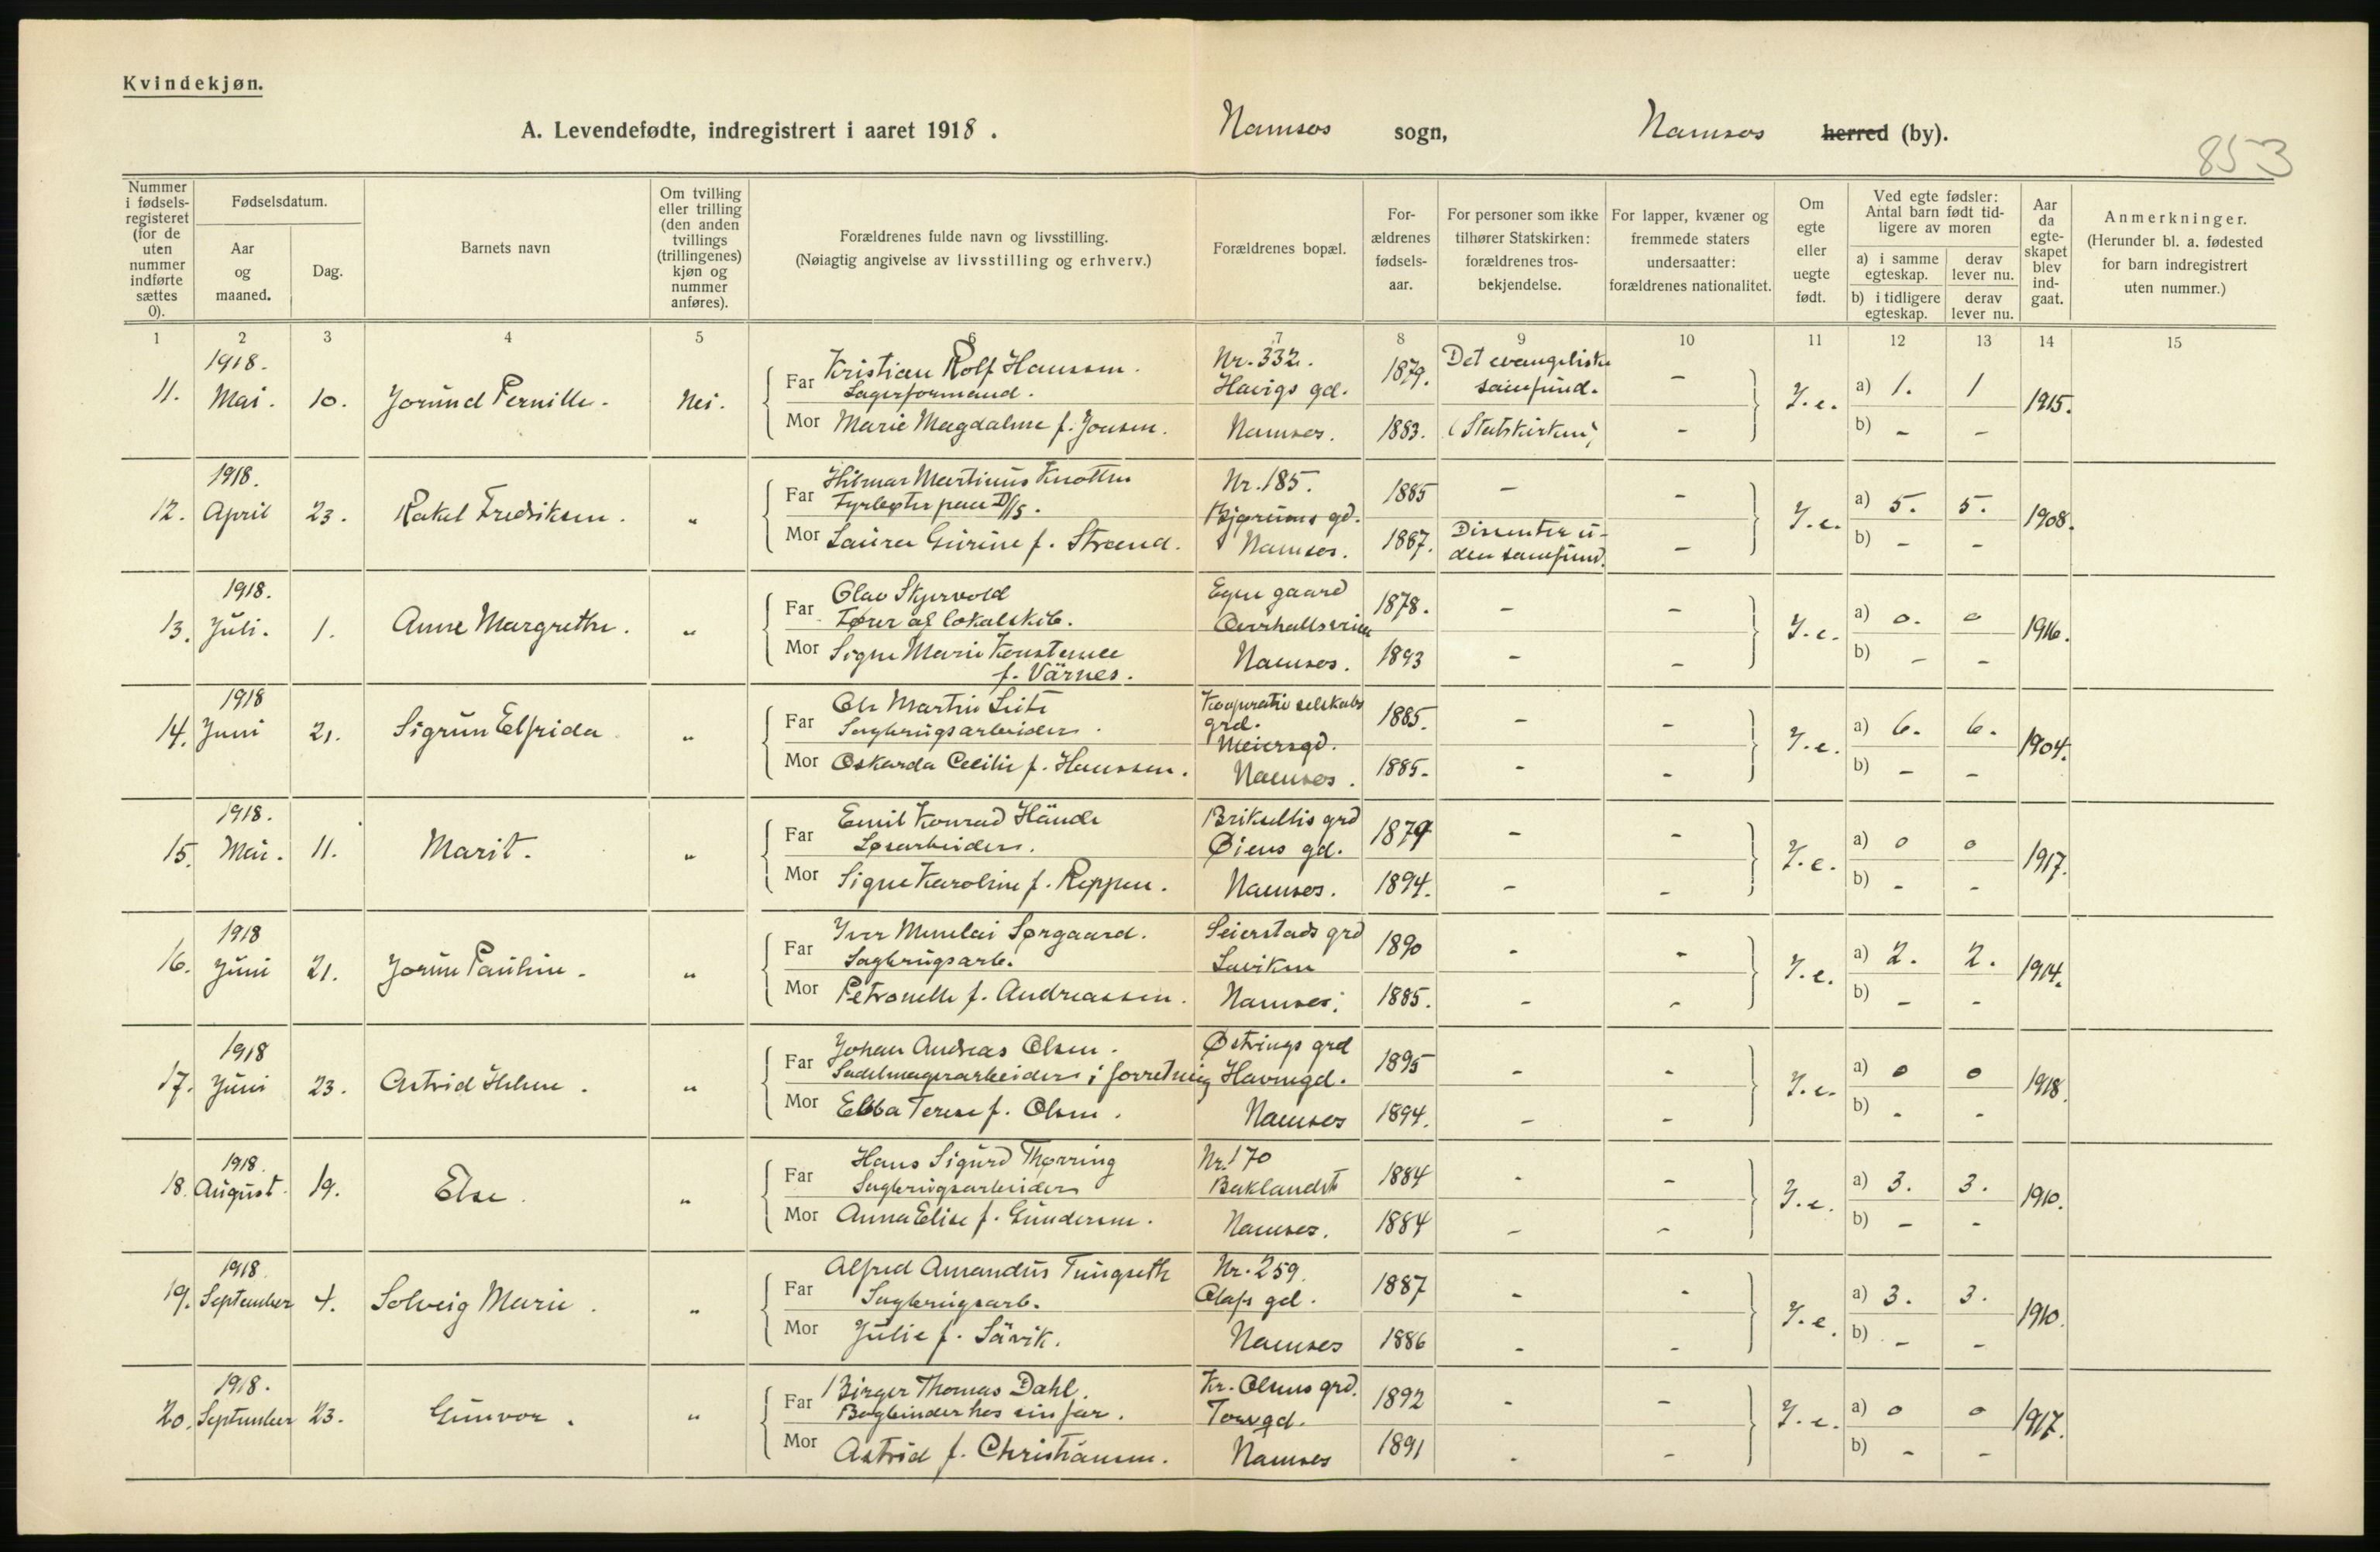 Kvindekjøn.
A. Levendefødte, indregistrert i aaret 1918. Namsos sogn, Namsos herred (by).
853
Nummer i fødselsregisteret (for de uten nummer indførte sættes 0).
Fødselsdatum.
Aar og maaned.
Dag.
Barnets navn
Om tvilling eller trilling (den anden tvillings (trillingenes) kjøn og nummer anføres).
Forældrenes fulde navn og livsstilling.
(Nøiagtig angivelse av livsstilling og erhverv.)
Forældrenes bopæl.
Forældrenes fødselsaar.
For personer som ikke tilhører Statskirken: forældrenes trosbekjendelse.
For lapper, kvæner og fremmede staters undersaatter: forældrenes nationalitet.
Om egte eller uegte født.
Ved egte fødsler: Antal barn født tidligere av moren
a) i samme egteskap. derav lever nu.
b) i tidligere egteskap. derav lever nu.
Aar da egteskapet blev indgaat.
Anmerkninger.
(Herunder bl. a. fødested for barn indregistrert uten nummer.)
1 2 3 4 5 6 7 8 9 10 11 12 13 14 15
11. 1918. Mai. 10. Jorund Pernille. Nei.
Far Kristian Rolf Hanssen. Nr. 332. 1879. Det evangeliske samfund. -
Lagerformand. Havigs gd.
Mor Marie Magdalene f. Jensen. Namsos. 1883. (Statskirken) -
I. e. a) 1. 1 b) - - 1915.
12. 1918. April 23. Rakel Fredriksen. "
Far Hilmar Martinus Knotten Nr. 185. 1885 - -
Fyrbøter paa D/S. Bjørums gd.
Mor Laura Gurine f. Strand. Namsos. 1887. Dissenter uden samfund. -
I. e. a) 5. 5. b) - - 1908.
13. 1918. Juli. 1. Anne Margrethe. "
Far Olav Skjervold Egen gaard 1878. - -
Fører af lokalskib. Overhallsveien
Mor Signe Marie Konstanse f. Värnes. Namsos. 1893 - -
I. e. a) 0. 0 b) - - 1916.
14. 1918 Juni 21. Sigrun Elfrida "
Far Ole Martin Seite Kooperativselskabs grd. 1885. - -
Sagbrugsarbeider. Meiersgd.
Mor Oskarda Cecilie f. Hanssen. Namsos. 1885. - -
I. e. a) 6. 6. b) - - 1904.
15. 1918. Mai. 11. Marit. "
Far Emil Konrad Hände Briksellis grd 1879 - -
Løsarbeider. Øiens gd.
Mor Signe Karoline f. Reppen. Namsos. 1894. - -
I. e. a) 0 0 b) - - 1917.
16. 1918 Juni 21. Jorun Pauline. "
Far Iver Menelai Sørgaard. Seierstads grd 1890 - -
Sagbrugsarb. Laviken
Mor Petronelle f. Andreassen. Namsos. 1885. - -
I. e. a) 2. 2. b) - - 1914.
17. 1918 Juni 23. Astrid Helene. "
Far Johan Andreas Olsen. Østrings grd 1895 - -
Sadelmagerarbeider i forretning Havnegd.
Mor Ebba Terese f. Olsen. Namsos 1894. - -
I. e. a) 0 0 b) - - 1918.
18. 1918. August. 19. Else. "
Far Hans Sigurd Thørring Nr. 170 1884 - -
Sagbrugsarbeider Baklandet
Mor Anna Elise f. Gundersen. Namsos. 1884 - -
I. e. a) 3. 3. b) - - 1910.
19. 1918. September 4. Solveig Marie. "
Far Alfred Amandus Tungseth Nr. 259. 1887 - -
Sagbrugsarb. Olafs gd.
Mor Julie f. Sävik. Namsos 1886 - -
I. e. a) 3. 3. b) - - 1910.
20. 1918. September 23. Gunvor. "
Far Birger Thomas Dahl. Kr. Olsens grd. 1892 - -
Bogbinder hos sin far. Torvgd.
Mor Astrid f. Christiansen. Namsos 1891 - -
I. e. a) 0 0 b) - - 1917.